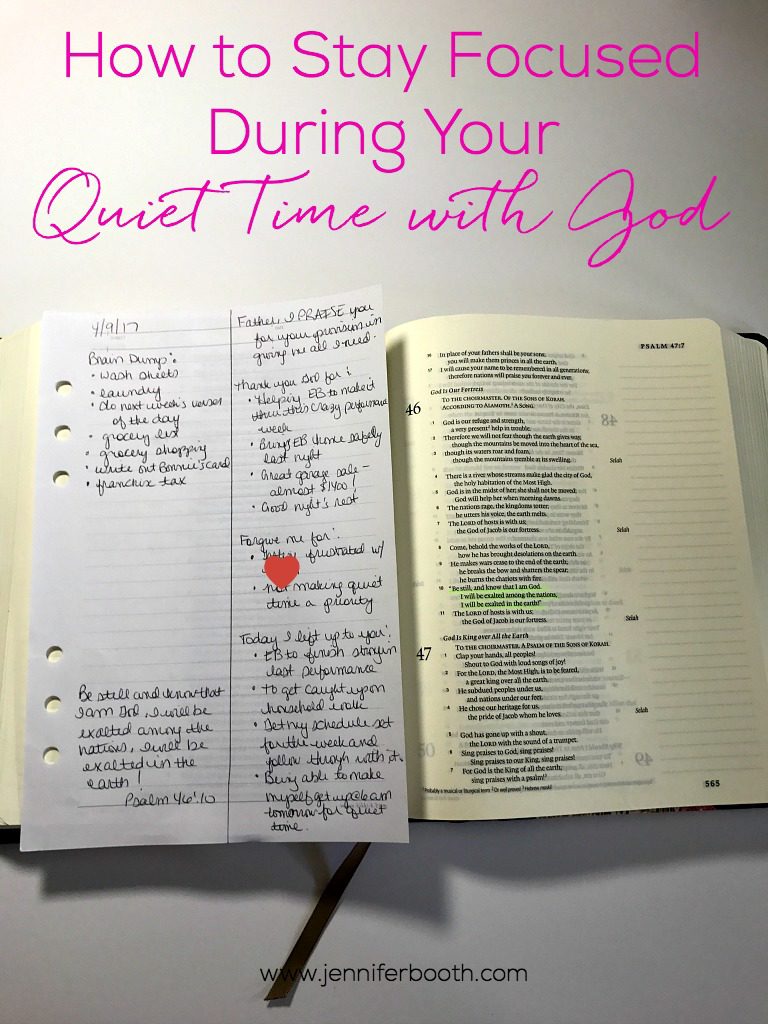 How to Stay Focused
During Your
Quiet Time with God
4/9/17
Brain Dump:
• wash sheets
• laundry
• do next week's verses
of the day
• grocery list
• grocery shopping
• write out Bonnie's card
• franchise tax
Be still and know that
I am God, I will be
exalted among the
nations, I will be
exalted in the
earth!
Psalm 46:10
Father, I PRAISE you
for your provision in
giving me all I need.
Thank you God for:
• Helping EB to make it
thru this crazy performance
week
• Bring EB home safely
last night
• Great garage sale -
almost $1400!
• Good night's rest
Forgive me for:
• frustrated w/
• Not making quiet
time a priority
Today I lift up to you:
• EB to finish strong in
last performance
• To get caught up on
household work
• Get my schedule set
for the week and
follow through with it.
• Being able to make
myself get up @ 6am
tomorrow for quiet
time.
PSALM 47:7
16 In place of your fathers shall be your sons;
you will make them princes in all the earth.
17 I will cause your name to be remembered in all generations;
therefore nations will praise you forever and ever.
God Is Our Fortress
46 TO THE CHOIRMASTER. OF THE SONS OF KORAH.
ACCORDING TO ALAMOTH.¹ A SONG.
1 God is our refuge and strength,
a very present² help in trouble.
2 Therefore we will not fear though the earth gives way,
though the mountains be moved into the heart of the sea,
3 though its waters roar and foam,
though the mountains tremble at its swelling. Selah
4 There is a river whose streams make glad the city of God,
the holy habitation of the Most High.
5 God is in the midst of her; she shall not be moved;
God will help her when morning dawns.
6 The nations rage, the kingdoms totter;
he utters his voice, the earth melts.
7 The LORD of hosts is with us;
the God of Jacob is our fortress. Selah
8 Come, behold the works of the LORD,
how he has brought desolations on the earth.
9 He makes wars cease to the end of the earth;
he breaks the bow and shatters the spear;
he burns the chariots with fire.
10 "Be still, and know that I am God.
I will be exalted among the nations,
I will be exalted in the earth!"
11 The LORD of hosts is with us;
the God of Jacob is our fortress. Selah
God Is King over All the Earth
47 TO THE CHOIRMASTER. A PSALM OF THE SONS OF KORAH.
1 Clap your hands, all peoples!
Shout to God with loud songs of joy!
2 For the LORD, the Most High, is to be feared,
a great king over all the earth.
3 He subdued peoples under us,
and nations under our feet.
4 He chose our heritage for us,
the pride of Jacob whom he loves. Selah
5 God has gone up with a shout,
the LORD with the sound of a trumpet.
6 Sing praises to God, sing praises!
Sing praises to our King, sing praises!
7 For God is the King of all the earth;
sing praises with a psalm!³
¹ Probably a musical or liturgical term ² Or well proved ³ Hebrew maskil
565
www.jenniferbooth.com